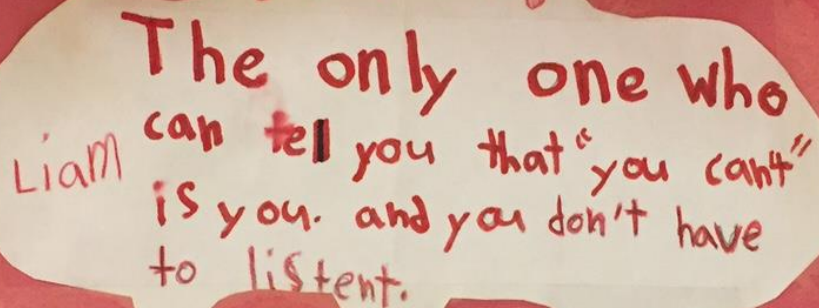 The only one who
Liam can tell you that "you can't"
is you. and you don't have
to listent.